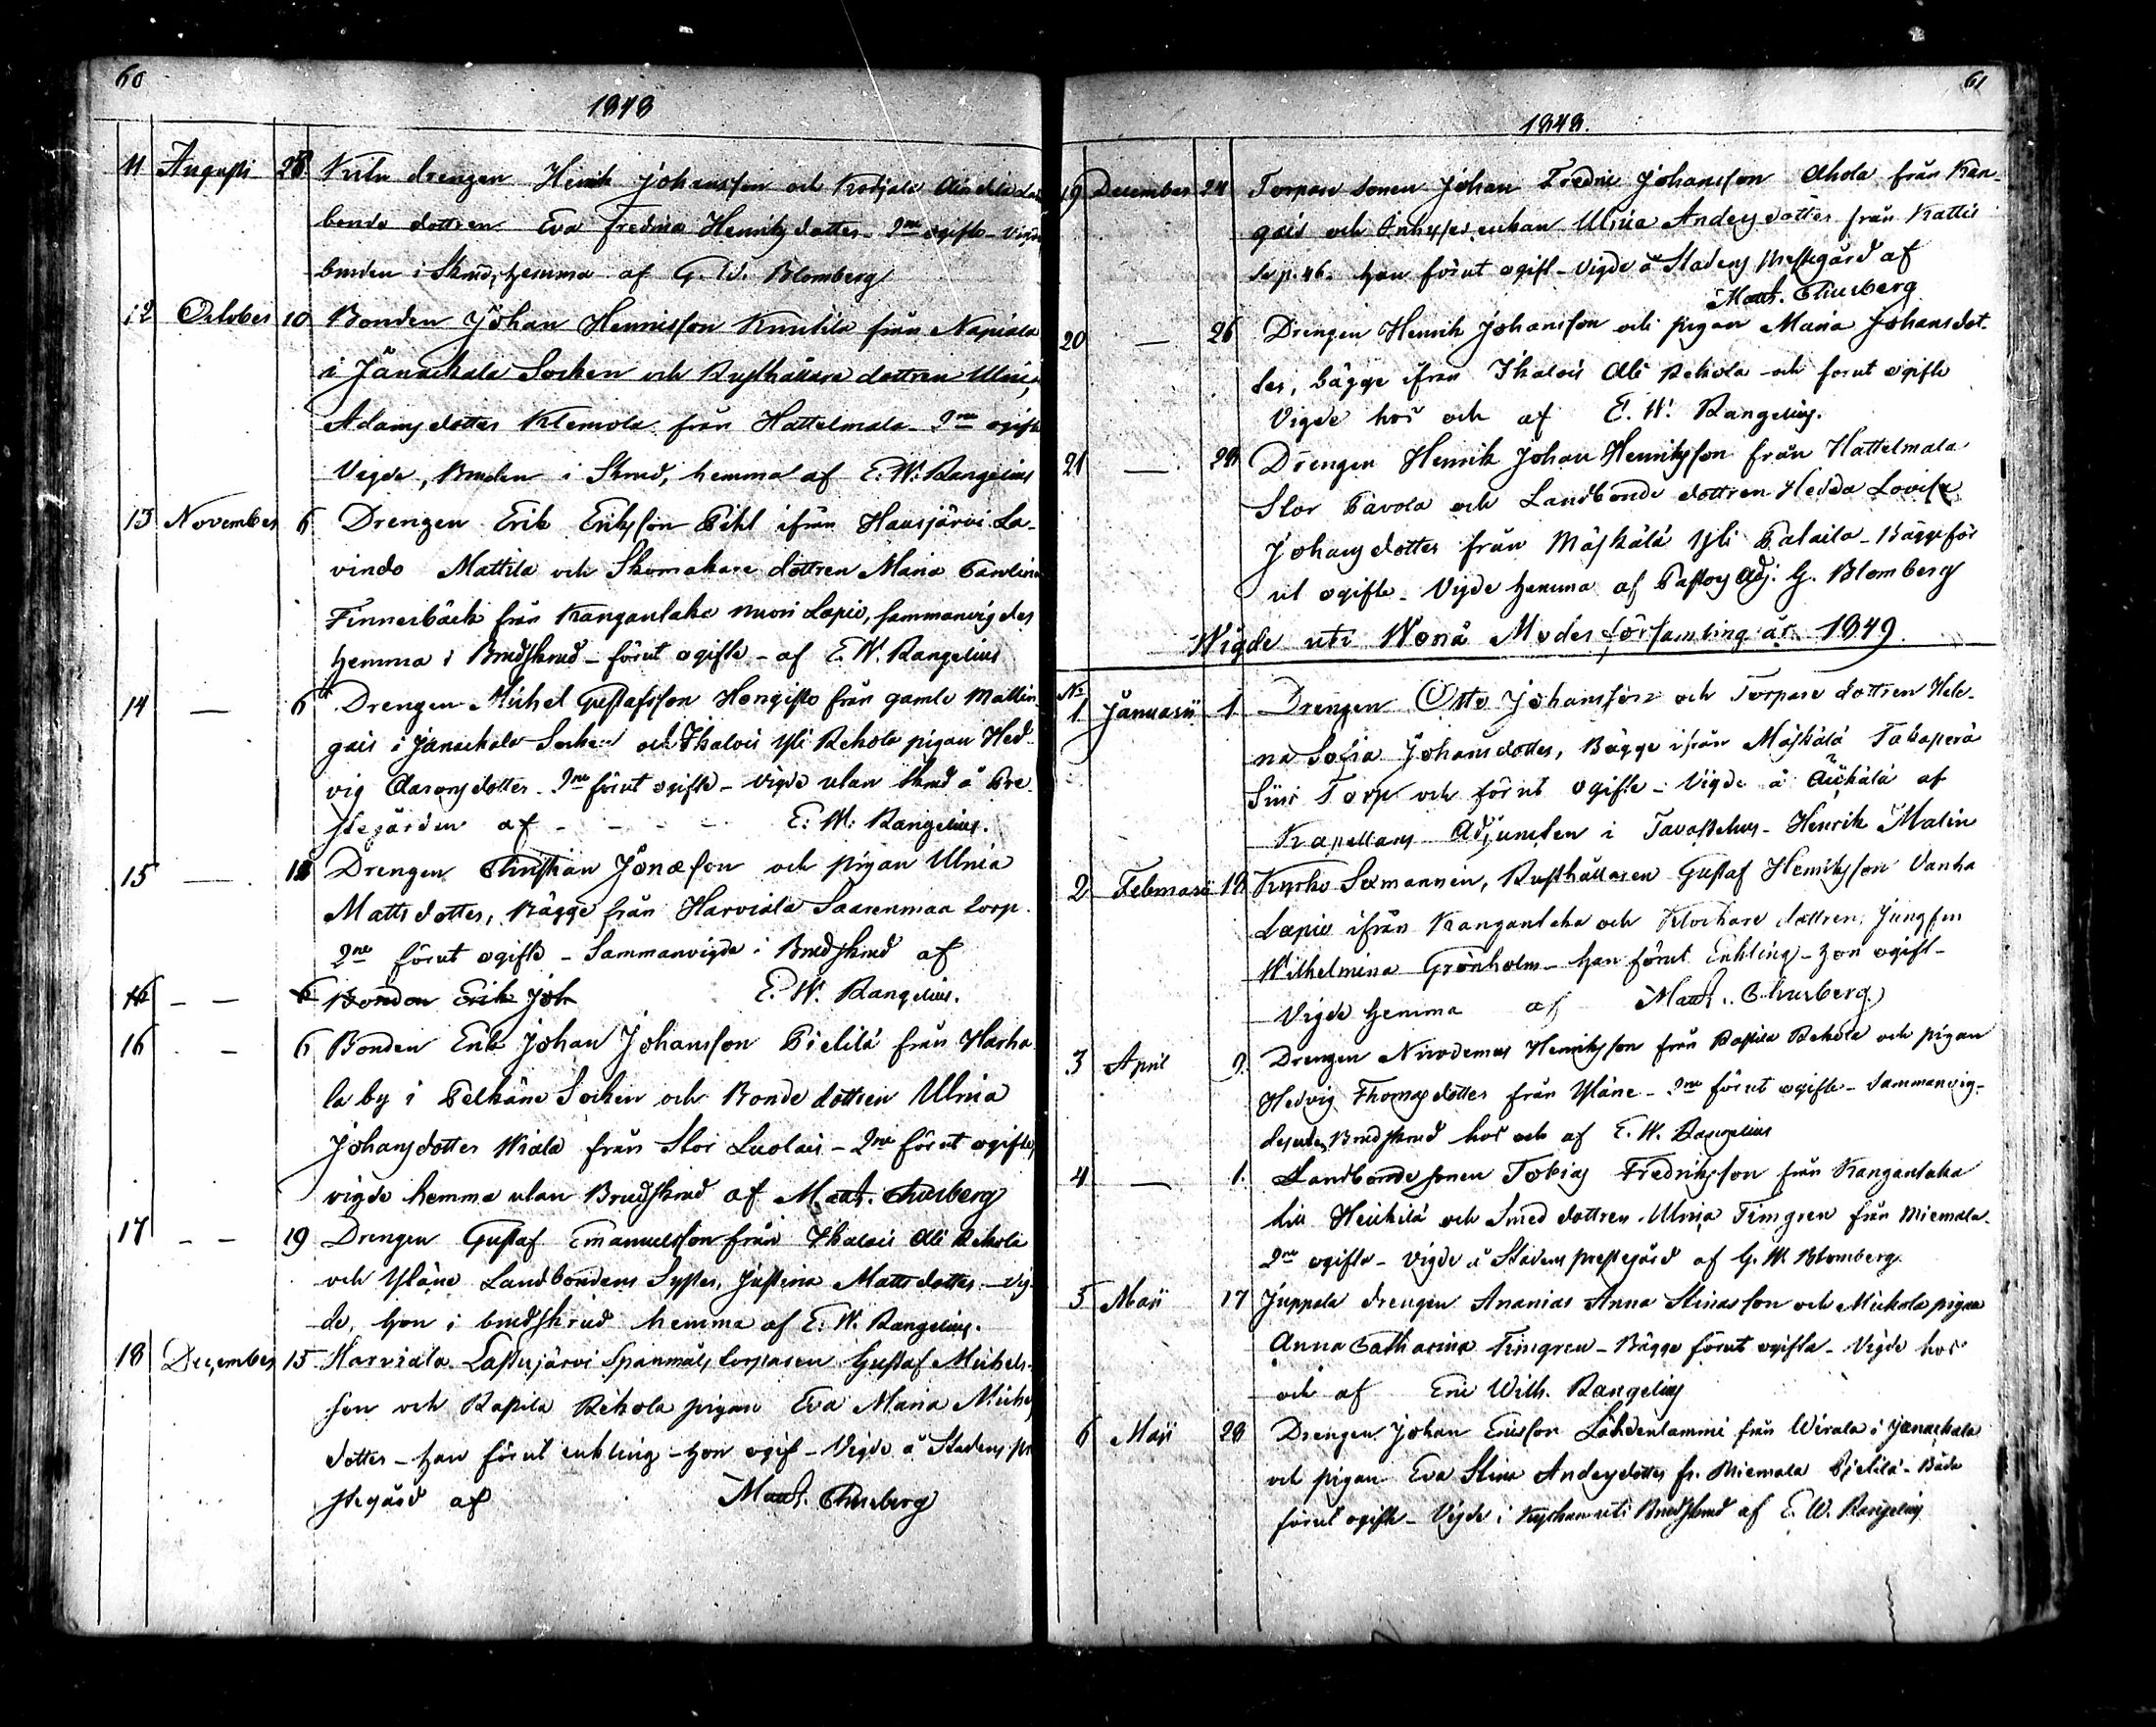 60
1848
11 Augusti 28 drengen Henrik Johansson och
bonde dottren Eva Fredrica Henriksdotter - 2ne ogifte - Vigde
bruden i Skrud, hemma af G. W. Blomberg
12 October 10 Bonden Johan Henricsson Knutila från Napiala
i Janackala Socken och Rusthållare dottren Ulrica
Adamsdotter Klemola från Hattelmala - 2ne ogifte
Vigde, Bruden i Skrud, hemma af E. W. Rangelius
13 November 6 Drengen Erik Eriksson Pihl ifrån Hausjärvi La-
vindo Mattila och Skomakare dottren Maria Carolina
Finnerbäck från Kangantaka nuori Lapio, sammanvigdes
hemma i Brudskrud - förut ogifte - af E. W. Rangelius
14 — 6 Drengen Michel Gustafsson Hongisto från gamla Mallin-
gais i Janackala Socken och Ihalois Yli Rekola pigan Hed-
vig Aaronsdotter - 2ne förut ogifte - vigde utan Skrud å Pre-
stegården af - - - - E. W. Rangelius.
15 — 12 Drengen Christian Jonæson och pigan Ulrica
Mattsdotter, Bägge från Harviala Saarenmaa torp.
2ne förut ogifte - Sammanvigde i Brudskrud af
16 — — 6 Bonden Erik Joh E. W. Rangelius.
16 — 6 Bonden Erik Johan Johansson Pietilä från Harha-
la by i Pelkäne Socken och Bonde dottren Ulrica
Johansdotter Wiala från Stor Luolais - 2ne förut ogifte,
vigde hemma utan Brudskrud af Math. Thusberg
17 — — 19 Drengen Gustaf Emanuelsson från Ihalois Ali Rekola
och Yläne Landbondens Syster, Justina Mattsdotter - vig-
de, hon i brudskrud hemma af E. W. Rangelius.
18 December 15 Harviala Lastujärvi Spanmåls torparen Gustaf Michels-
son och Rapila Rekola pigan Eva Maria Michels
dotter - han förut enkling - hon ogif - Vigde å Stadens pre
stegård af Math. Thusberg
61
1848.
19 December 24 Torpare sonen Johan Fredric Johansson Ahola från Kan-
gais och Inhyses enkan Ulrica Andersdotter från Kattis
han förut ogift - Vigde å Stadens Prestgård af
Math. Thusberg
20 — 26 Drengen Henrik Johansson och pigan Maria Johansdot-
ter, bägge ifrån Ihalois Ali Rekola - och förut ogifte
Vigde hos och af E. W. Rangelius.
21 — 29 Drengen Henrik Johan Henriksson från Hattelmala
Stor Pavola och Landbonde dottren Hedda Lovisa
Johansdotter från Mäskälä Yli Palaila - Bägge för
ut ogifte - Vigde hemma af Pastors Adj. G. Blomberg
Wigde uti Wonå Moder församling år 1849.
No
1 Januarii 1 Drengen Otto Johansson och Torpare dottren Hele-
na Sofia Johansdotter, Bägge ifrån Mäskälä Takaperä
Suni Torp och förut ogifte - Vigde å af
Kapellans Adjuncten i Tavastehus - Henrik Malin
2 Februarii 18 Kyrko Sexmannen, Rusthållaren Gustaf Henriksson Vanha
Lapio ifrån Kangantaka och Klockare dottren, Jungfru
Wilhelmina Grönholm - han förut Enkling - hon ogift -
Vigde hemma af Math. Thusberg.
3 April 9. Drengen Nicodemus Henriksson från Rapila Rekola och pigan
Hedvig Thomasdotter från Yläne - 2ne förut ogifte - Sammanvig-
des utan Brudskrud hos och af E. W. Rangelius
4 — 1. Landbonde sonen Tobias Fredriksson från Kangantaka
Heickilä och Smed dottren Ulrica Timgren från Miemala -
2ne ogifte - Vigde å Stadens prestegård af G. W. Blomberg
5 Maji 17 Juppala drengen Ananias Anna Stinasson och Mickola pigan
Anna Catharina Timgren - Bägge förut ogifta - Vigde hos
och af Eric Wilh. Rangelius
6 Maji 28 Drengen Johan Ericsson Lähdenlammi från Wirala i Janackala
och pigan Eva Stina Andersdotter fr. Miemala Pietilä - Båda
förut ogifte - Vigde i Kyrkan uti Brudskrud af E. W. Rangelius